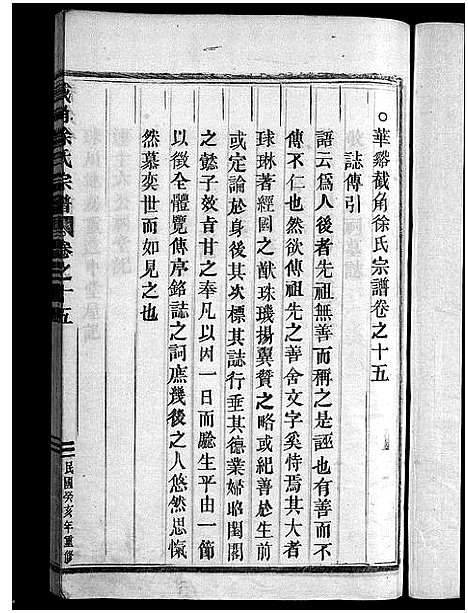 華谿截角徐氏宗譜卷之十五
誌傳引
語云爲人後者先祖無善而稱之是誣也有善而不
傳不仁也然欲傳祖先之善舍文字奚恃焉其大者
球琳著經國之猷珠璣揚翼贊之略或紀善於生前
或定論於身後其次標其誌行垂其德業婦昭閨閣
之懿子效旨甘之奉凡以因一日而驗生平由一節
以徵全體覽傳序銘誌之詞庶幾後之人悠然思愾
然慕奕世而如見之也
截角徐氏宗譜 卷之十五
民國癸亥年重修